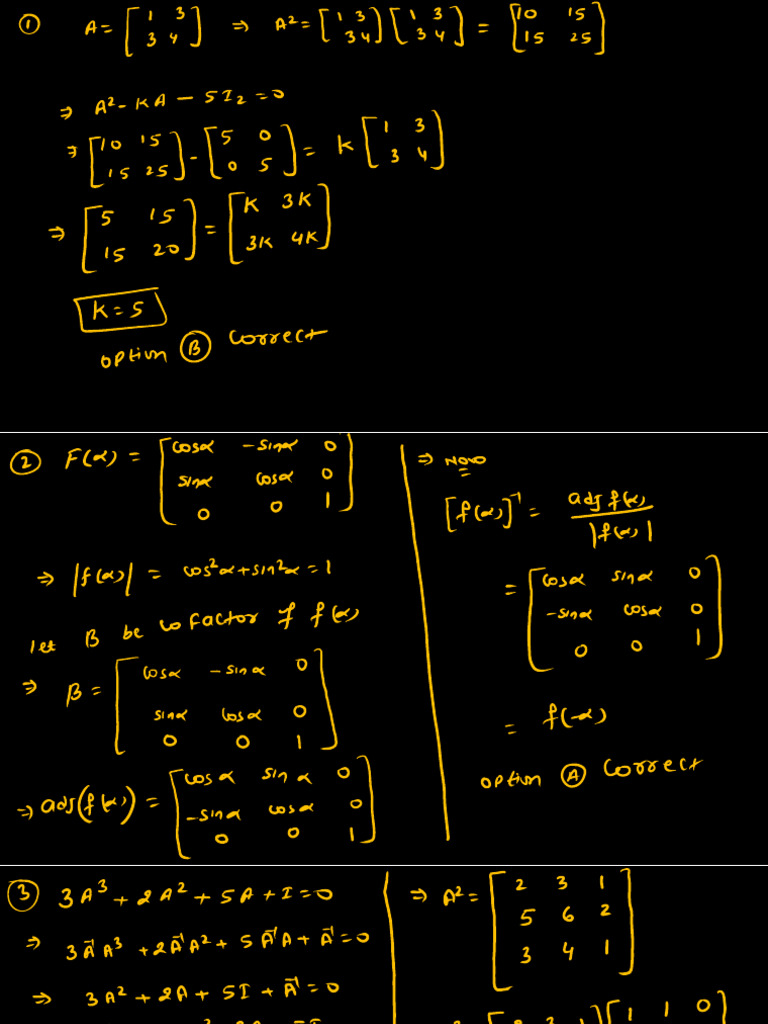 ① A = [1 3; 3 4] ⇒ A² = [1 3; 3 4] [1 3; 3 4] = [10 15; 15 25]
⇒ A² - KA - 5I₂ = 0
⇒ [10 15; 15 25] - [5 0; 0 5] = K [1 3; 3 4]
⇒ [5 15; 15 20] = [K 3K; 3K 4K]
K = 5
option Ⓑ correct
② F(α) = [cosα -sinα 0; sinα cosα 0; 0 0 1]
⇒ |f(α)| = cos²α + sin²α = 1
let B be cofactor of f(α)
⇒ B = [cosα -sinα 0; sinα cosα 0; 0 0 1]
⇒ adj(f(α)) = [cosα sinα 0; -sinα cosα 0; 0 0 1]
⇒ Now
[f(α)]⁻¹ = adj f(α) / |f(α)|
= [cosα sinα 0; -sinα cosα 0; 0 0 1]
= f(-α)
option Ⓐ correct
③ 3A³ + 2A² + 5A + I = 0
⇒ 3A⁻¹A³ + 2A⁻¹A² + 5A⁻¹A + A⁻¹ = 0
⇒ 3A² + 2A + 5I + A⁻¹ = 0
⇒ A² = [2 3 1; 5 6 2; 3 4 1]
1 1 0